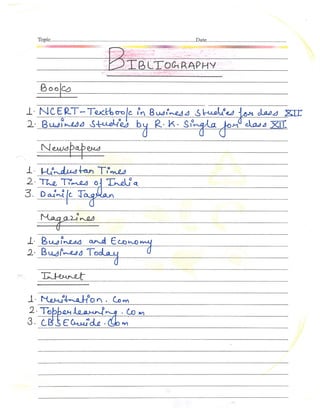 Topic
Date
BIBLIOGRAPHY
Books
1. NCERT-Textbook in Business Studies for class XII
2. Business Studies by R.K. Singla for class XII
Newspapers
1. Hindustan Times
2. The Times of India
3. Dainik Jagran
Magazines
1. Business and Economy
2. Business Today
Internet
1. Meritnation.Com
2. Topperlearning.Com
3. CBSEGuide.Com